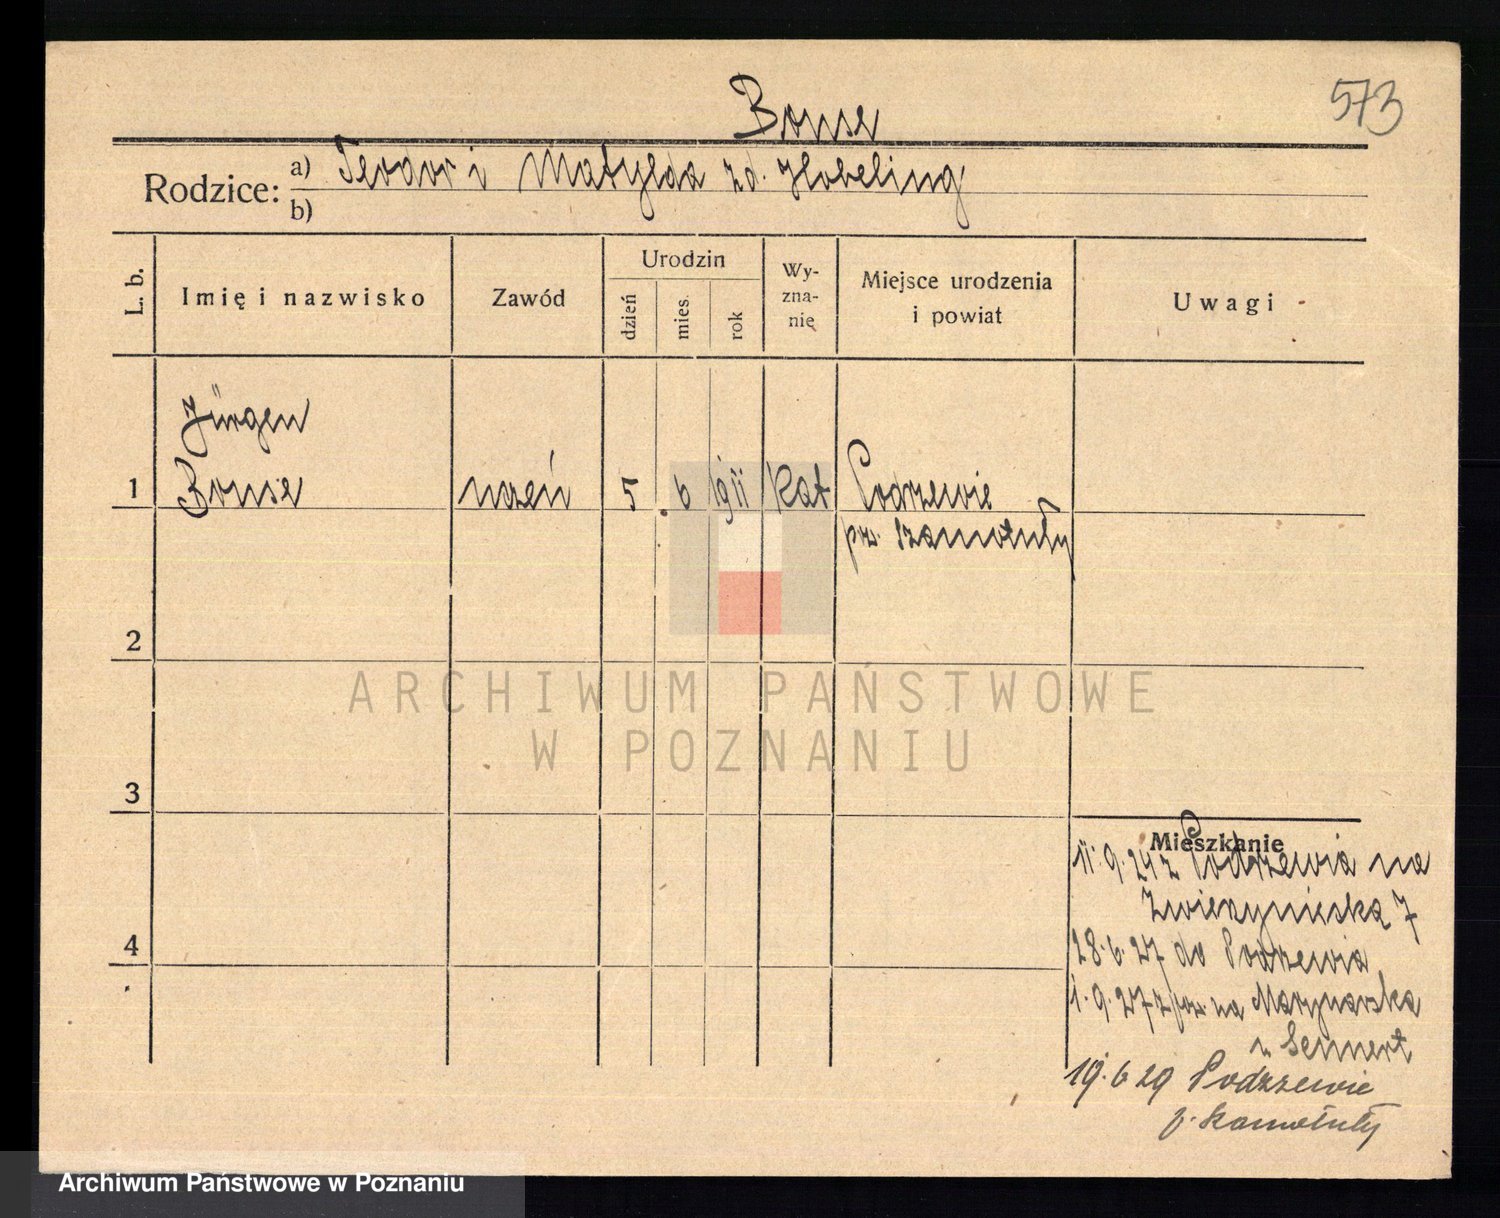 573
Bonse
Rodzice: a) Teodor i Matylda zd. Hobeling
b)
L. b.
Imię i nazwisko
Zawód
Urodzin
dzień
mies.
rok
Wy-
zna-
nie
Miejsce urodzenia
i powiat
Uwagi
Jürgen
1 Bonse uczeń 5 6 1911 kat Podrzewie
pw. Szamotuły
2
ARCHIWUM PAŃSTWOWE
W POZNANIU
3
Mieszkanie
11.9.24 z Podrzewia na
Zwierzyniecką 7
4
28.6.27 do Podrzewia
1.9.27 z na Marynarska
u Sennert
19.6 29 Podrzewie
p. Szamotuły
Archiwum Państwowe w Poznaniu